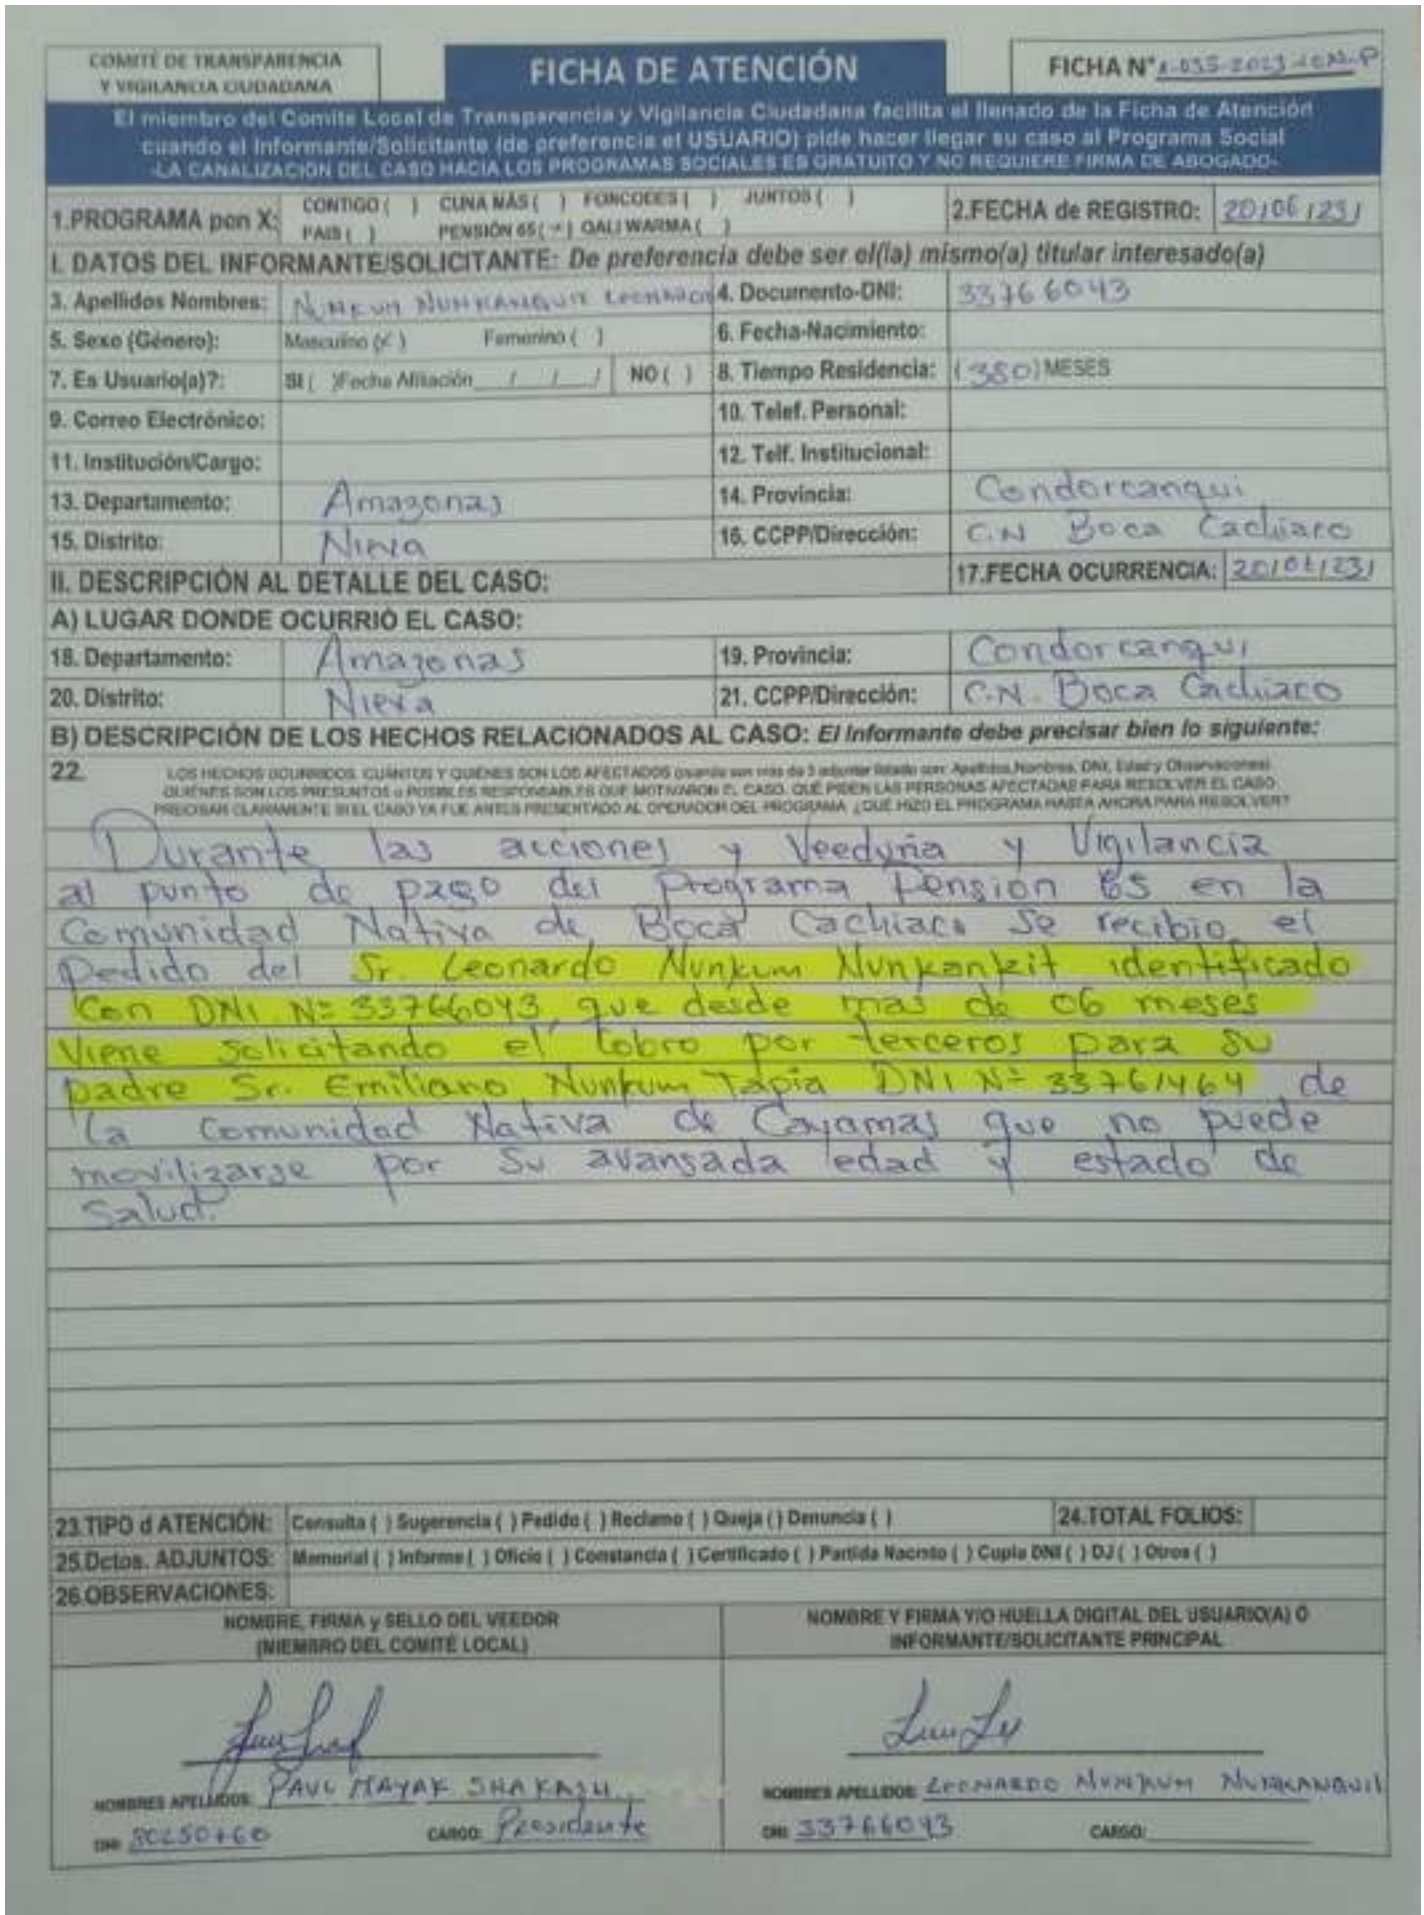 COMITÉ DE TRANSPARENCIA
Y VIGILANCIA CIUDADANA
FICHA DE ATENCIÓN
FICHA N°
El miembro del Comite Local de Transparencia y Vigilancia Ciudadana facilita el llenado de la Ficha de Atención
cuando el Informante/Solicitante (de preferencia el USUARIO) pide hacer llegar su caso al Programa Social
-LA CANALIZACIÓN DEL CASO HACIA LOS PROGRAMAS SOCIALES ES GRATUITO Y NO REQUIERE FIRMA DE ABOGADO-
1.PROGRAMA pon X: CONTIGO ( ) CUNA MÁS ( ) FONCODES ( ) JUNTOS ( )
PAIS ( ) PENSIÓN 65 ( ) QALI WARMA ( )
2.FECHA de REGISTRO: 20/06/23/
I. DATOS DEL INFORMANTE/SOLICITANTE: De preferencia debe ser el(la) mismo(a) titular interesado(a)
3. Apellidos Nombres: NUNKUM 4. Documento-DNI: 33766043
5. Sexo (Género): Masculino (X) Femenino ( ) 6. Fecha-Nacimiento:
7. Es Usuario(a)?: SI ( )Fecha Afiliación / / / NO ( ) 8. Tiempo Residencia: (380) MESES
9. Correo Electrónico: 10. Telef. Personal:
11. Institución/Cargo: 12. Telf. Institucional:
13. Departamento: Amazonas 14. Provincia: Condorcanqui
15. Distrito: Nieva 16. CCPP/Dirección: C.N Boca Cachiaco
II. DESCRIPCIÓN AL DETALLE DEL CASO: 17.FECHA OCURRENCIA:
A) LUGAR DONDE OCURRIÓ EL CASO:
18. Departamento: Amazonas 19. Provincia: Condorcanqui
20. Distrito: Nieva 21. CCPP/Dirección: C.N. Boca Cachiaco
B) DESCRIPCIÓN DE LOS HECHOS RELACIONADOS AL CASO: El Informante debe precisar bien lo siguiente:
22. LOS HECHOS OCURRIDOS, CUÁNTOS Y QUIÉNES SON LOS AFECTADOS (cuando son más de 3 adjuntar listado con: Apellidos, Nombres, DNI, Edad y Observaciones)
QUIÉNES SON LOS PRESUNTOS o POSIBLES RESPONSABLES QUE MOTIVARON EL CASO, QUÉ PIDEN LAS PERSONAS AFECTADAS PARA RESOLVER EL CASO.
PRECISAR CLARAMENTE SI EL CASO YA FUE ANTES PRESENTADO AL OPERADOR DEL PROGRAMA ¿QUÉ HIZO EL PROGRAMA HASTA AHORA PARA RESOLVER?
Durante las acciones y Veeduria y Vigilancia
al punto de pago del Programa Pensión 65 en la
Comunidad Nativa de Boca Cachiaco se recibio el
Pedido del Sr. Leonardo Nunkum Nunkankit identificado
Con DNI Nº 33766043, que desde mas de 06 meses
Viene Solicitando el Cobro por terceros para su
padre Sr. Emiliano Nunkum Tapia DNI Nº 33761464 de
la Comunidad Nativa de Cayamas que no puede
movilizarse por Su avansada edad y estado de
Salud.
23.TIPO d ATENCIÓN: Consulta ( ) Sugerencia ( ) Pedido ( ) Reclamo ( ) Queja ( ) Denuncia ( ) 24.TOTAL FOLIOS:
25.Dctos. ADJUNTOS: Memorial ( ) Informe ( ) Oficio ( ) Constancia ( ) Certificado ( ) Partida Nacmto ( ) Copia DNI ( ) DJ ( ) Otros ( )
26.OBSERVACIONES:
NOMBRE, FIRMA y SELLO DEL VEEDOR
(MIEMBRO DEL COMITÉ LOCAL)
NOMBRE Y FIRMA Y/O HUELLA DIGITAL DEL USUARIO(A) O
INFORMANTE/SOLICITANTE PRINCIPAL
NOMBRES APELLIDOS: PAUL MAYAK SHAKAIU
DNI: CARGO: Presidente
NOMBRES APELLIDOS: LEONARDO NUNKUM
DNI: 33766043 CARGO: